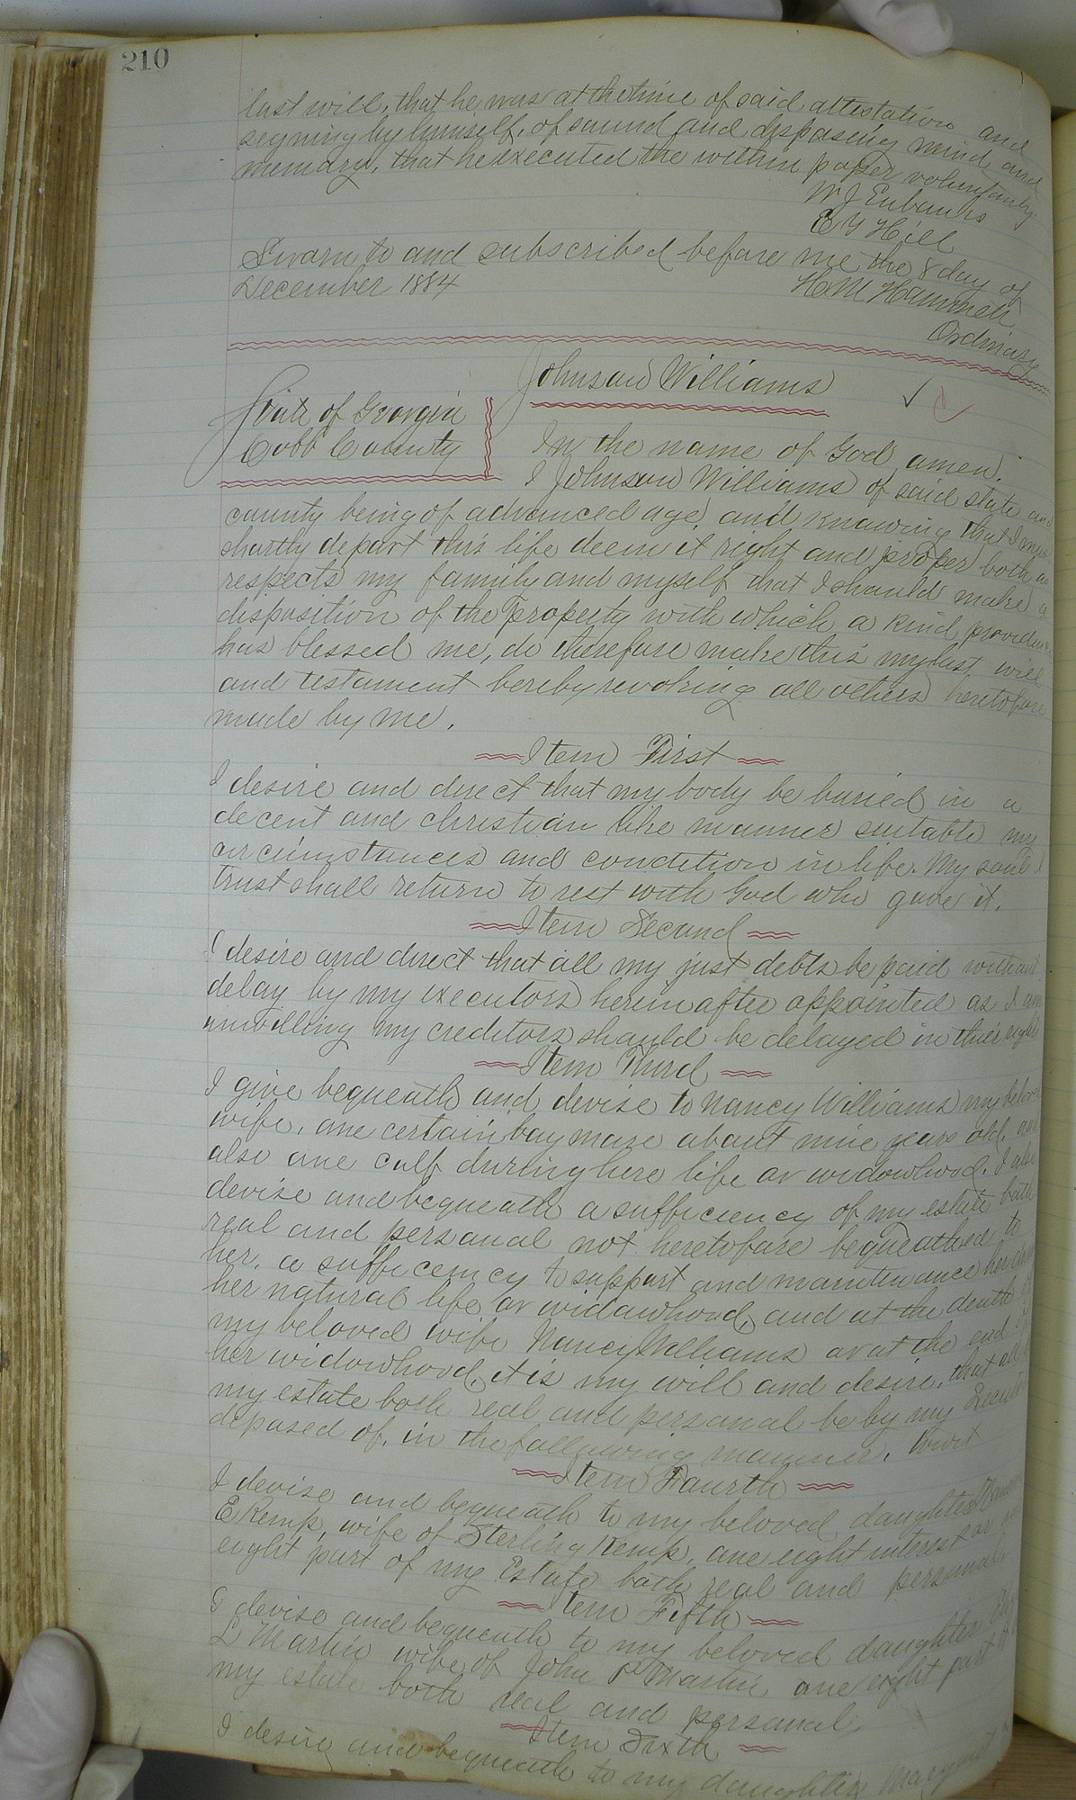 210
last will, that he was at the time of said attestation and
signing by himself, of sound and disposing mind and
memory, that he executed the within paper voluntarily
W J Eubanks
E Y Hill
Sworn to and subscribed before me the 8 day of
December 1884
H M Hammett
Ordinary
Johnson Williams
State of Georgia
Cobb County
In the name of God amen.
I Johnson Williams of said state and
county being of advanced age, and knowing that I may
shortly depart this life deem it right and proper both as
respects my family and myself that I should make a
disposition of the property with which a kind providence
has blessed me, do therefore make this my last will
and testament hereby revoking all others heretofore
made by me.
Item First
I desire and direct that my body be buried in a
decent and christian like manner suitable my
circumstances and condition in life. My soul I
trust shall return to rest with God who gave it.
Item Second
I desire and direct that all my just debts be paid without
delay by my executors herein after appointed as I am
unwilling my creditors should be delayed in their rights
Item Third
I give bequeath and devise to Nancy Williams my beloved
wife, one certain bay mare about nine years old, and
also one calf during here life or widowhood. I also
devise and bequeath a sufficiency of my estate both
real and personal not heretofore bequeathed to
her, a sufficency to support and maintenance her
her natural life or widowhood, and at the death of
my beloved wife Nancy Williams or at the end of
her widowhood, it is my will and desire, that all
my estate both real and personal be by my
deposed of, in the following manner. towit
Item Fourth
I devise and bequeath to my beloved daughter
E Kemp, wife of Sterling Kemp, one eight interest or
eight part of my Estate both real and personal
Item Fifth
I devise and bequeath to my beloved daughter
L Martin wife of John P Martin one eight part of
my estate both real and personal.
Item Sixth
I desire and bequeath to my daughter Margaret